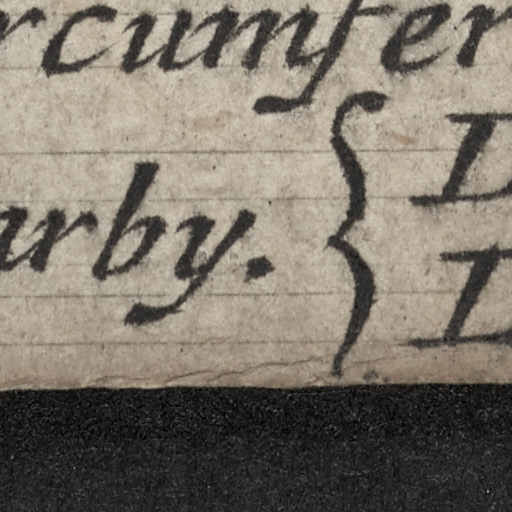 rcumfer
arby. { D
D